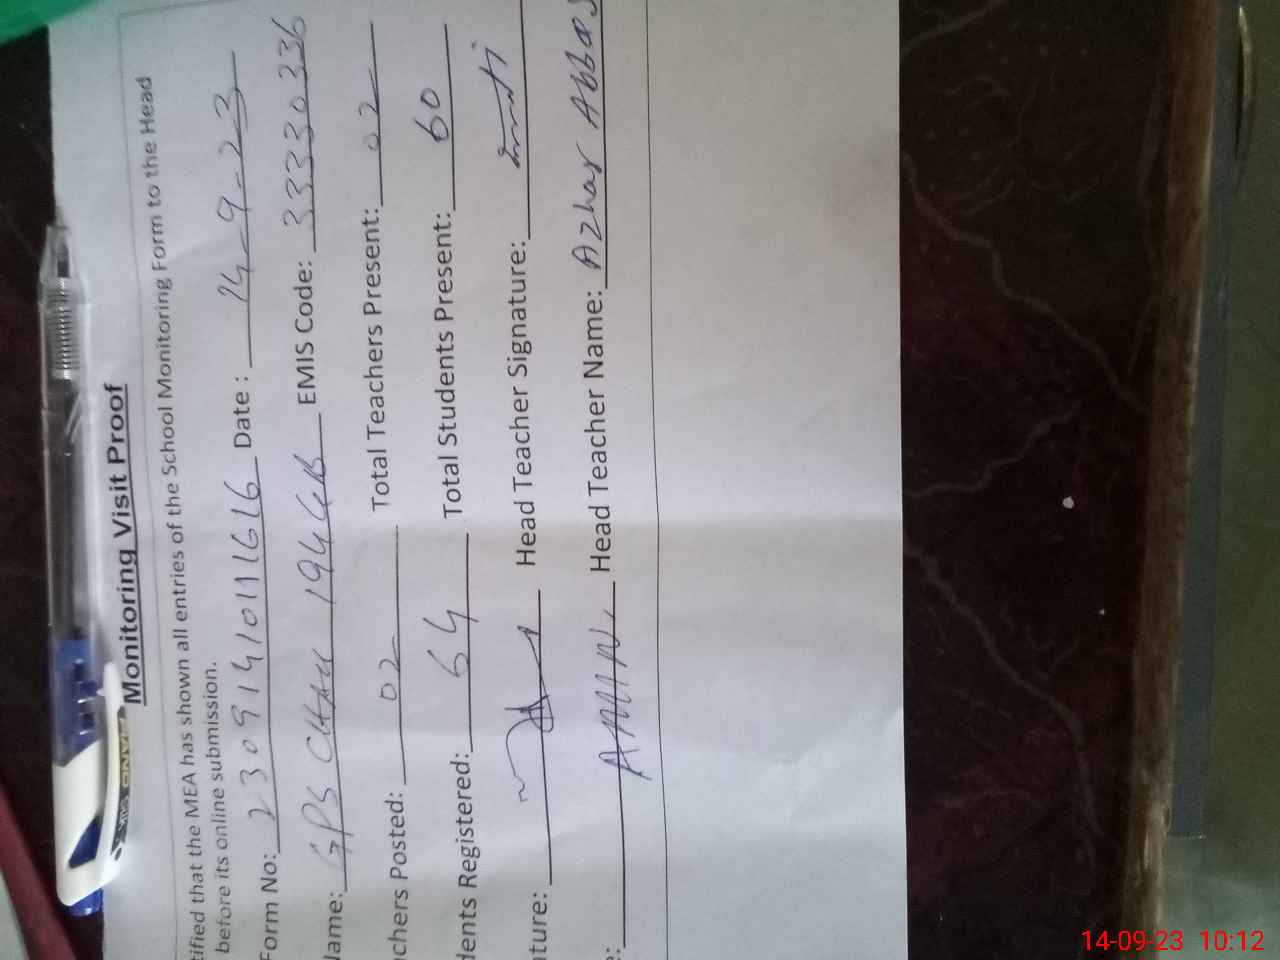 Monitoring Visit Proof
tified that the MEA has shown all entries of the School Monitoring Form to the Head
before its online submission.
Form No: 2309141011616 Date : 14-9-23
Name: GPS CHAK 194GB EMIS Code: 33330336
chers Posted: 02 Total Teachers Present: 02
dents Registered: 64 Total Students Present: 60
ture: Head Teacher Signature:
e: AMIN Head Teacher Name: Azhar Abbas
PIANO
14-09-23 10:12